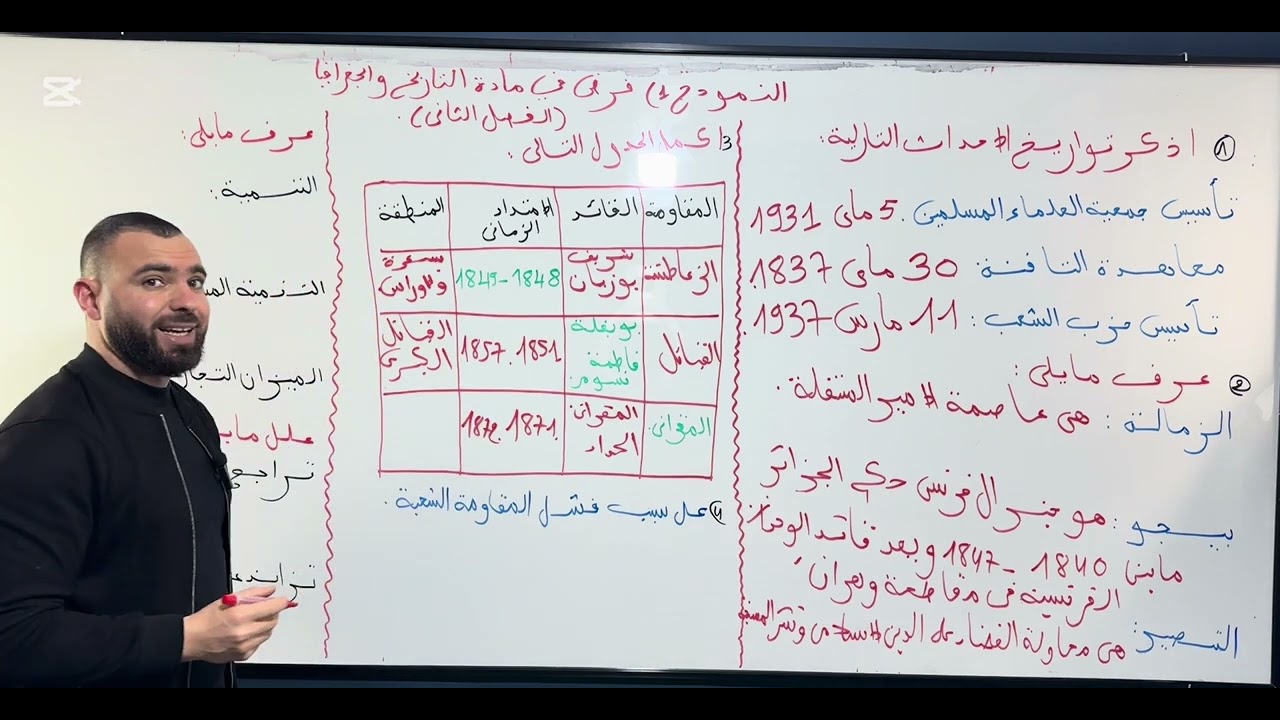 النموذج (1) فرض في مادة التاريخ والجغرافيا
(الفصل الثاني).
① اذكر تواريخ الأحداث التالية:
تأسيس جمعية العلماء المسلمين. 5 ماي 1931
معاهدة التافنة: 30 ماي 1837.
تأسيس حزب الشعب: 11 مارس 1937.
② عرف مايلي:
الزمالة: هي عاصمة الأمير المتنقلة.
بيجو: هو جنرال فرنسي حكم الجزائر
مابين 1840 - 1847 ويعد قائد
الفرنسية في مقاطعة وهران
التنصير: هي محاولة القضاء على الدين الإسلامي ونشر
3) أكمل الجدول التالي:
المقاومة القائد الامتداد الزماني المنطقة
الزعاطشة شريف بوزيان 1848-1849 بسكرة والأوراس
القبائل بوبغلة فاطمة نسومر 1851. 1857 القبائل الكبرى
المقراني. المقراني الحداد 1871. 1872
4) علل سبب فشل المقاومة الشعبية.
عرف مايلي:
التنمية:
التنمية
الميزان
علل
تراجع
تزايد